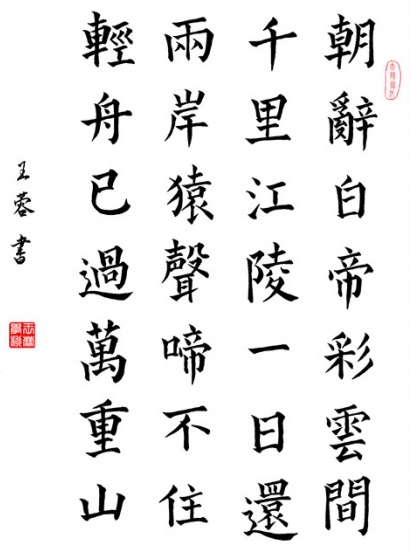 朝辭白帝彩雲間
千里江陵一日還
兩岸猿聲啼不住
輕舟已過萬重山
王蓉書